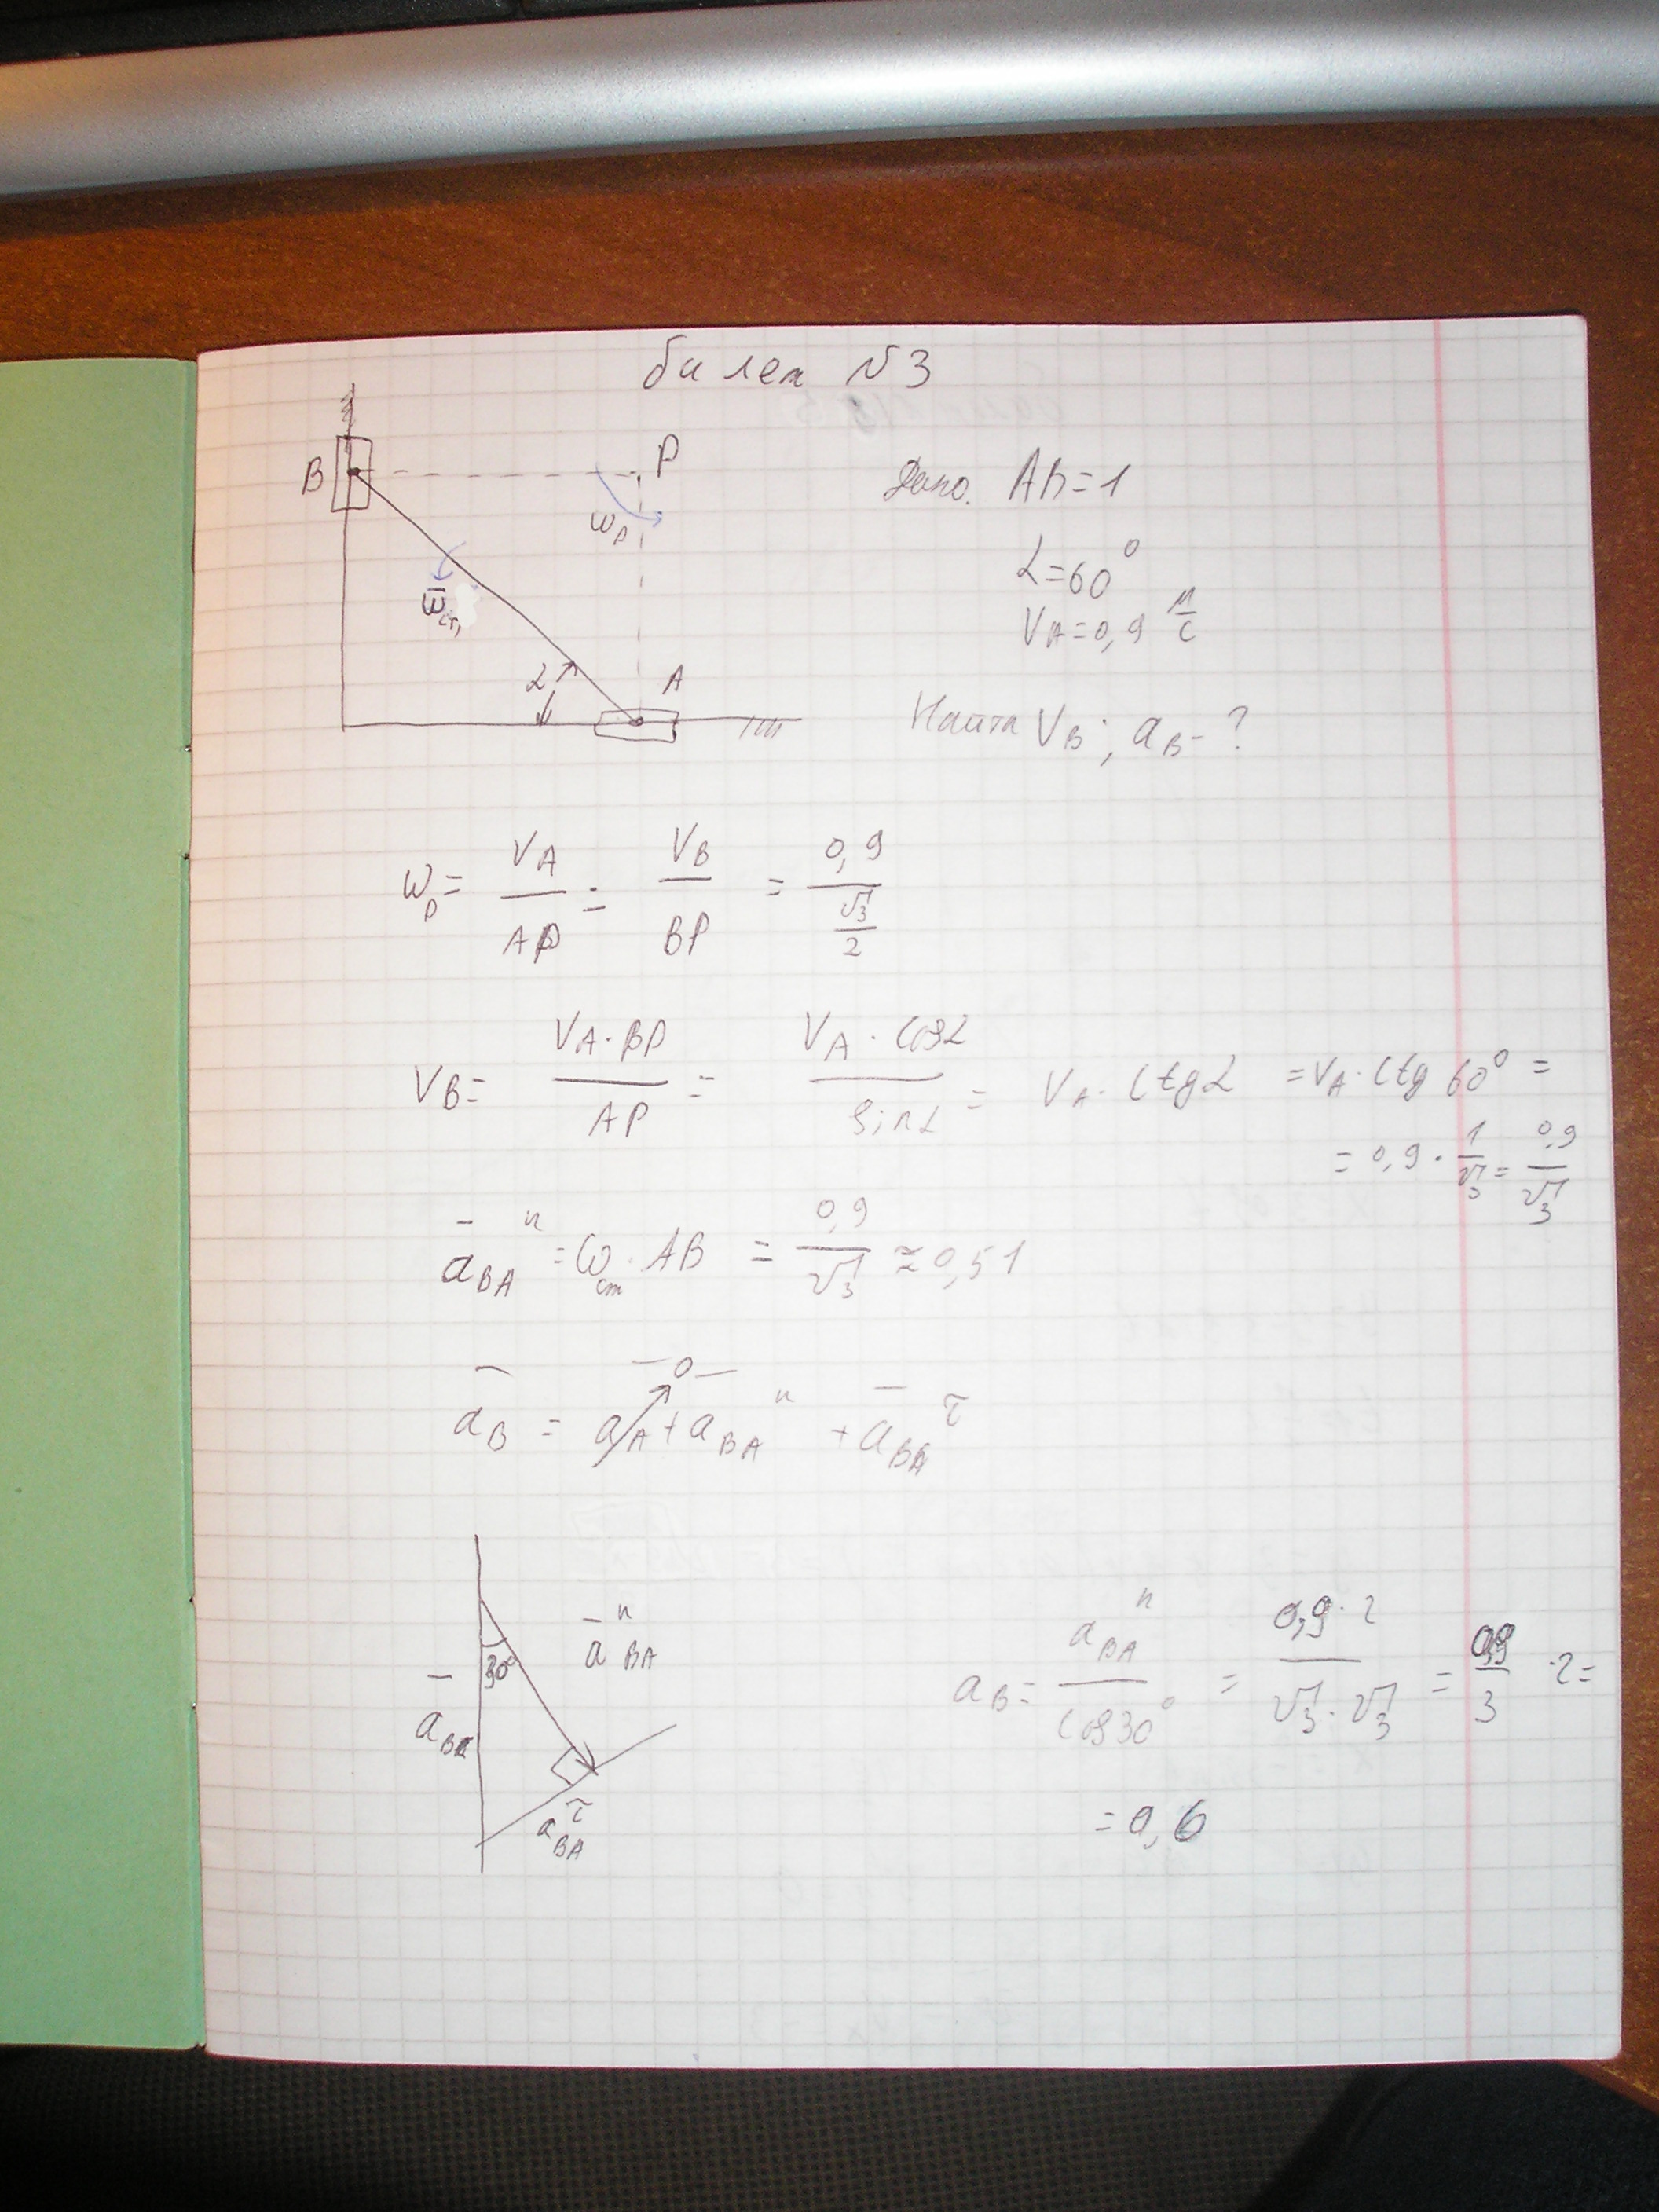 билет №3
B
P
ω_P
ω̄_ст
α
A
Дано. AB=1
α=60°
V_A=0,9 м/с
Найти V_B; a_B-?
ω_P = V_A/AP = V_B/BP = 0,9/(√3/2)
V_B = V_A·BP/AP = V_A·cosα/sinα = V_A·ctgα = V_A·ctg60° =
= 0,9·1/√3 = 0,9/√3
ā_BA^n = ω_ст·AB = 0,9/√3 ≈ 0,51
ā_B = a_A↗0 + ā_BA^n + ā_BA^τ
30°
ā_BA^n
ā_BA
a_BA^τ
a_B = a_BA^n/cos30° = 0,9·2/(√3·√3) = 0,9/3 ·2=
=0,6